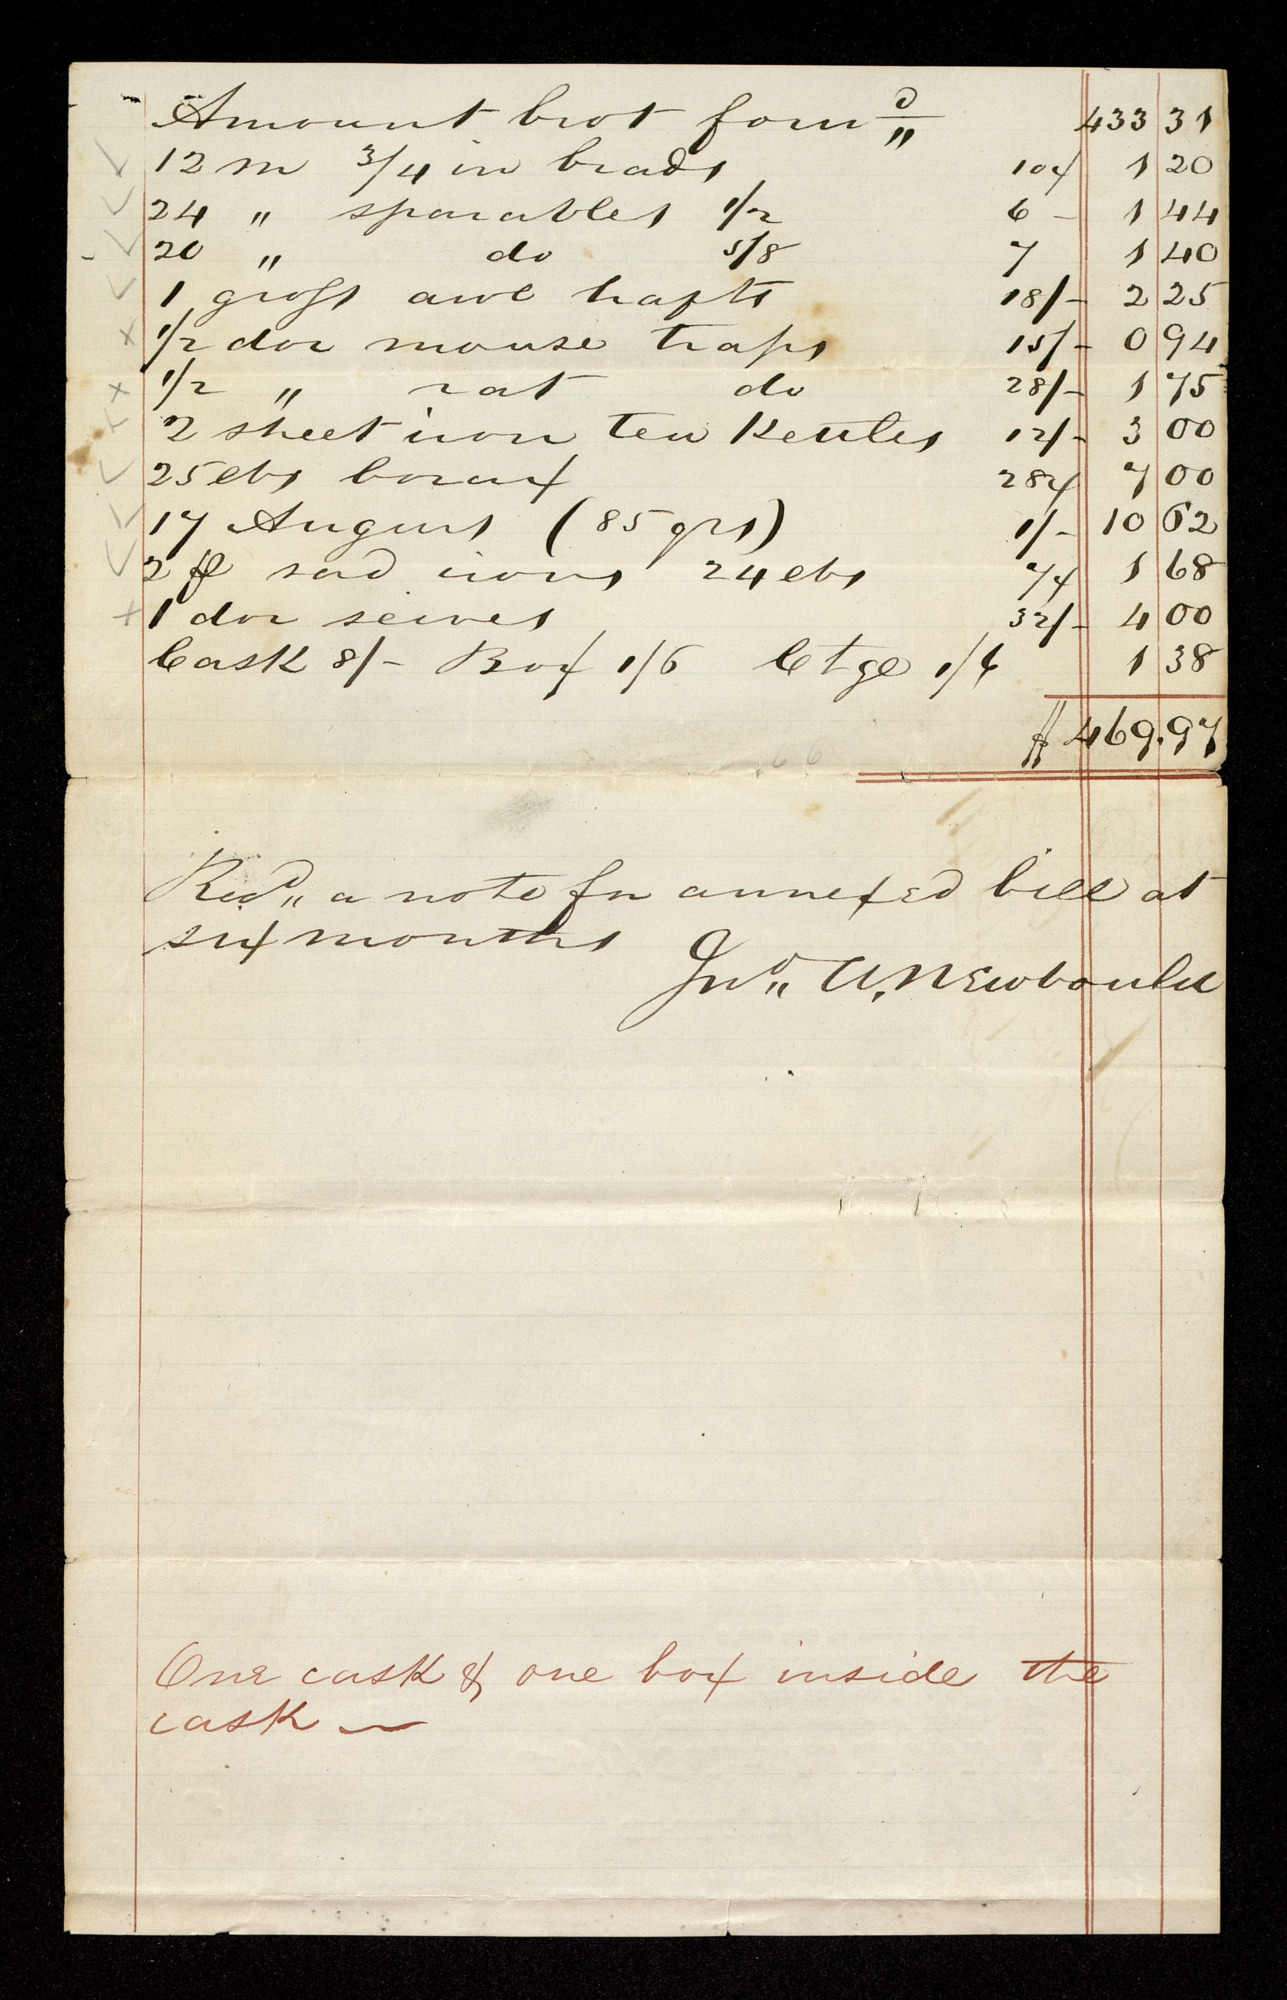 Amount brot forw d 433 31
12 m 3/4 in brads 10¢ 1 20
24 " sparables 1/2 6 - 1 44
20 " do 5/8 7 1 40
1 gross awl hafts 18/- 2 25
1/2 doz mouse traps 15/- 0 94
1/2 " rat do 28/- 1 75
2 sheet iron tea Kettles 12/- 3 00
25 lbs borax 28¢ 7 00
17 Augurs (85 qrs) 1/- 10 62
2 p sad irons 24 lbs 7¢ 1 68
1 doz seives 32/- 4 00
Cask 8/- Box 1/6 Ctge 1/6 1 38
$ 469.97
Recd " a note for annexed bill at
six months
Jno " A. Newbould
One cask & one box inside the
cask —